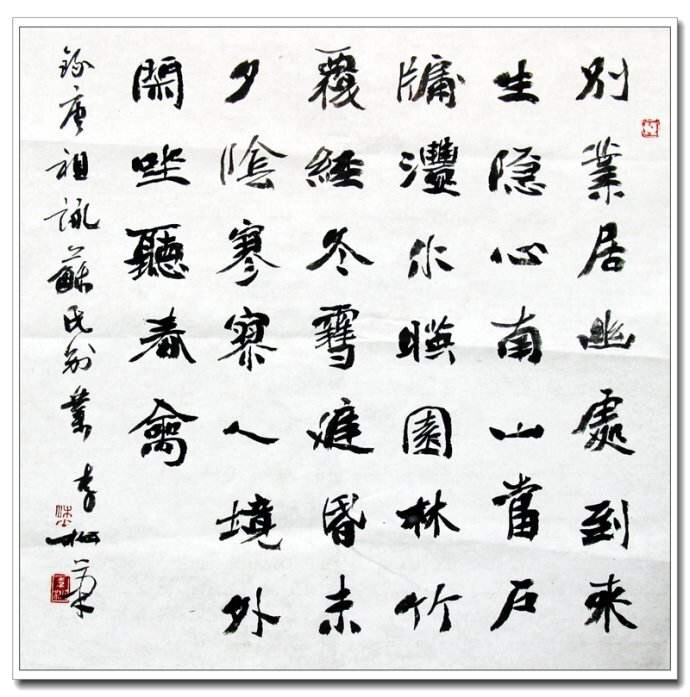 別業居幽處到來
生隐心南山當戶
牖灃水暎園林竹
覆經冬雪庭昏未
夕陰寥寥人境外
閑坐聽春禽
錄唐祖詠蘇氏別業